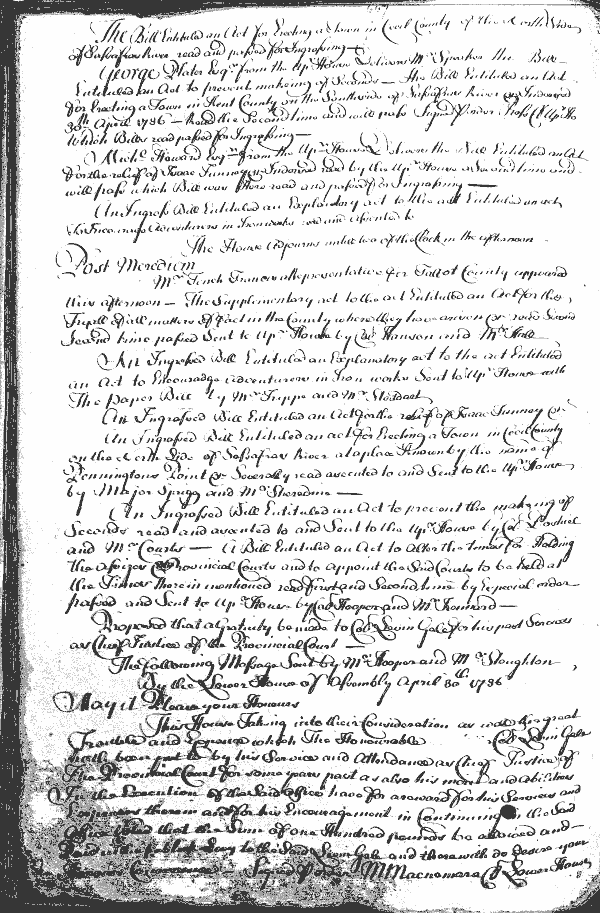 The Bill Entituled an Act for Erecting a Town in Cecil County of the North Side
of Sassafras River read and passed for Ingrossing
George Plater Esqr. from the Upr. House Delivers Mr. Speaker the Bill
Entituled an Act to prevent makeing of Seconds — the Bill Entituled an Act
for Erecting a Town in Kent County on the Southside of Sassafras River Indorsed
30th April 1736 — Read the Second time and will pass Signed Pr order Ross Cl Upr. Ho
Which Bills read passed for Ingrossing —
Esqr. from the Upr. House Delivers the Bill Entituled an Act
for the relief of Isaac Indorsed read by the Upr. House a Second time and
will pass which Bill was there read and passed for Ingrossing —
An Ingross Bill Entituled an Explanatory act to the act Entituled an act
to Encourage Adventurers in Iron works read and assented to
The House Adjourns untill two of the Clock in the afternoon
Post Meredium
Mr. Tench Francis a Representative for Talbot County appeared
this afternoon — The Supplementary act to the act Entituled an Act for the
Tryall of all matters of fact in the County where they have arisen &c read Second
Second time passed Sent to Upr. House by Hanson and Mr.
An Ingrossed Bill Entituled an Explanatory act to the act Entituled
an Act to Encouradge Adventurers in Iron works Sent to Upr. House with
The paper Bill by Mr. Trippe and Mr. Stoddert
An Ingrossed Bill Entituled an Act for the relief of Isaac &c
An Ingrossed Bill Entituled an act for Erecting a Town in Cecil County
on the North Side of Sassafras River at a place known by the name of
Penningtons Point &c Severally read assented to and Sent to the Upr. House
by Major Sprigg and Mr. Sheredine —
An Ingrossed Bill Entituled an Act to prevent the making of
Seconds read and assented to and Sent to the Upr. House by Col.
and Mr. Courts — A Bill Entituled an Act to Alter the times for Holding
the Assizes & Provincial Courts and to Appoint the Said Courts to be held at
the Times therein mentioned read first and Second time by Especial order
passed and Sent to Upr. House by Col Hooper and Mr. Kennard —
Proposed that a Gratuity be made to Col. Levin Gale for his past Services
as Chief Justice of the Provincial Court —
The following Message Sent by Mr. Hooper and Mr. Stoughton
By the Lower House of Assembly April 30th. 1736
May it Please your Honours
This House Taking into their Consideration as well the great
Trouble and Expence which The Honourable Col Levin Gale
hath been put to by his Service and Attendance as Chief Justice of
the Provincial Court for some years past as also his merit and abilities
In the Execution of the Said office have for a reward for his Services and
Expences therein and for his Encouragement in Continuing in the Said
Office Voted that the Sume of one Hundred pounds be allowed and
paid to the Said Levin Gale and therewith do desire your
Honours Concurrence — Signed Pr order M Macnemara Cl Lower House